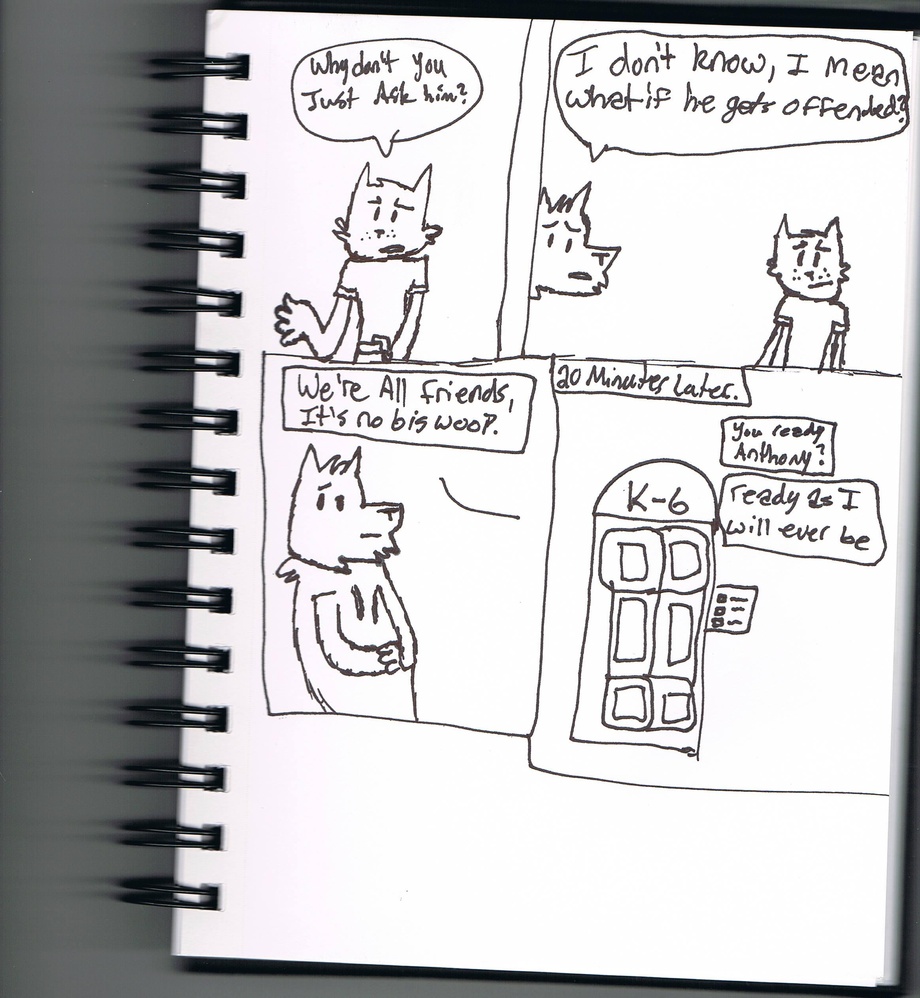 Why don't you
Just Ask him?
I don't know, I mean
what if he gets offended?
We're All friends,
It's no big woop.
20 Minutes Later.
You ready
Anthony?
ready as I
will ever be
K-6